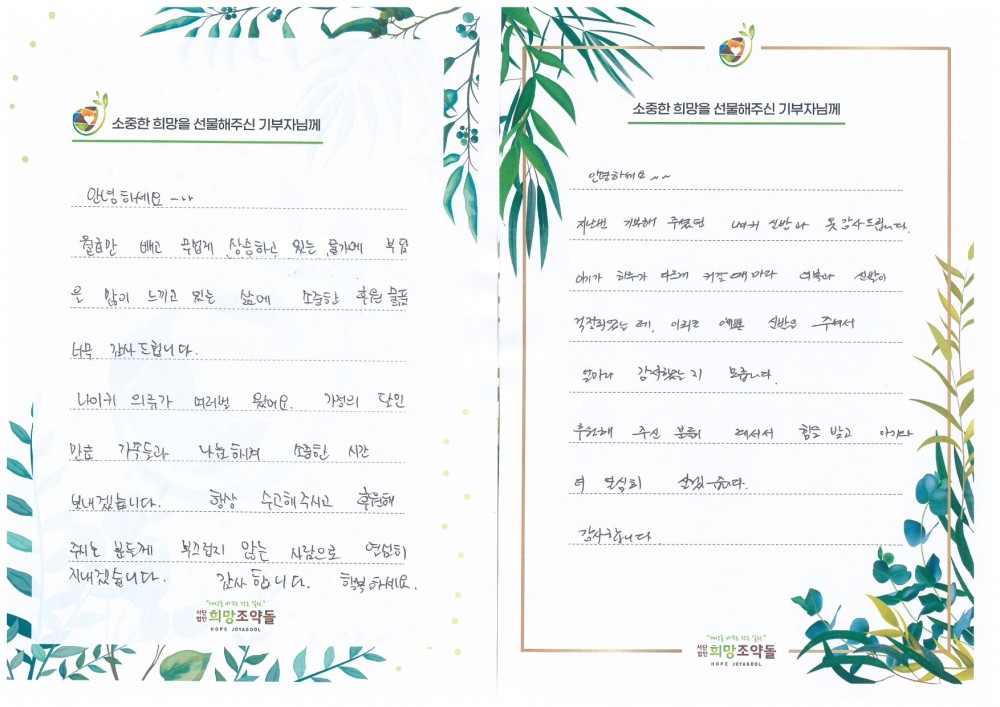 소중한 희망을 선물해주신 기부자님께
안녕하세요
월급만 빼고 무섭게 상승하고 있는 물가에 부담
을 많이 느끼고 있는 삶에 소중한 후원 물품
너무 감사드립니다.
나이키 의류가 여러벌 왔어요. 가정의 달인
만큼 가족들과 나눔하며 소중한 시간
보내겠습니다. 항상 수고해주시고 후원해
주시는 분들께 부끄럽지 않는 사람으로 열심히
지내겠습니다. 감사합니다. 행복하세요.
"세상을 바꾸는 작은 실천"
사단법인 희망조약돌
HOPE JOYAGDOL
소중한 희망을 선물해주신 기부자님께
안녕하세요 ~~
지난번 기부해 주셨던 나이키 신발과 옷 감사드립니다.
아이가 하루가 다르게 커갈때 마다 의복과 신발이
걱정되었는데, 이리도 예쁜 신발을 주셔서
얼마나 감사했는지 모릅니다.
후원해 주신 분들이 계셔서 힘을 받고 아이와
더 열심히 살겠습니다.
감사합니다
"세상을 바꾸는 작은 실천"
사단법인 희망조약돌
HOPE JOYAGDOL